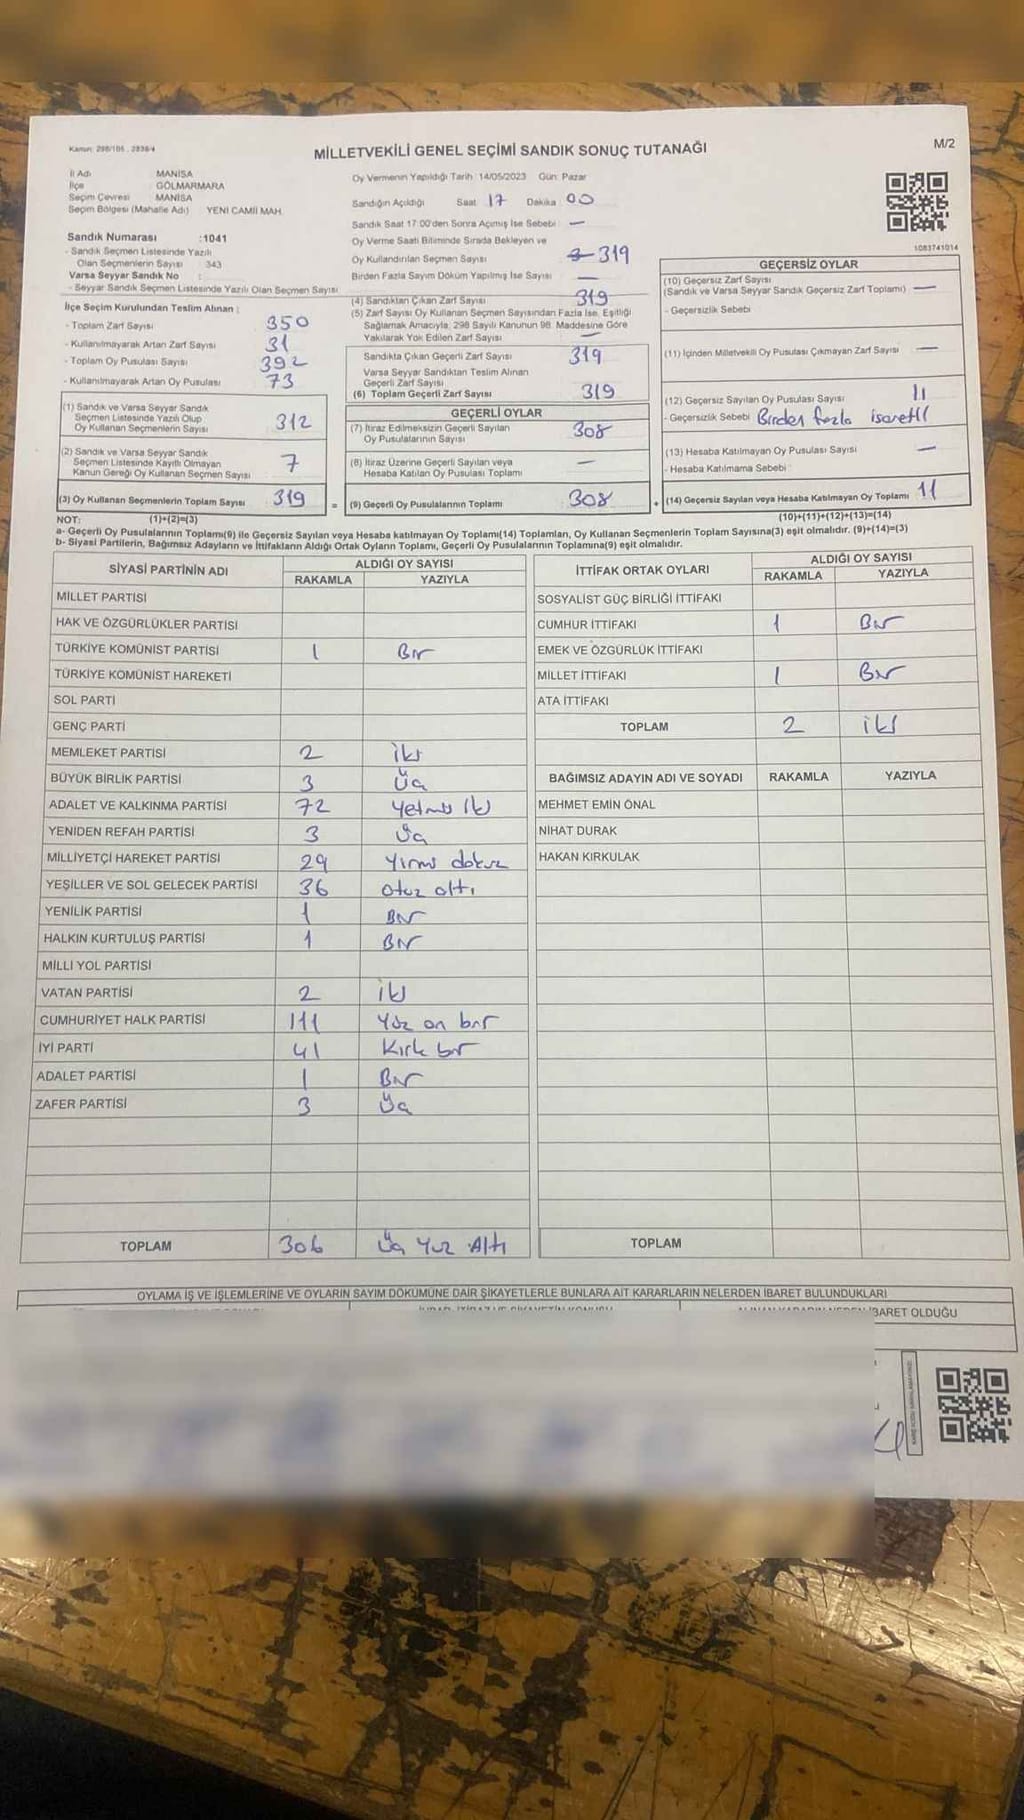 Kanun: 298/105 , 2839/4
MİLLETVEKİLİ GENEL SEÇİMİ SANDIK SONUÇ TUTANAĞI
M/2
İl Adı MANİSA
İlçe GÖLMARMARA
Seçim Çevresi MANİSA
Seçim Bölgesi (Mahalle Adı) YENİ CAMİİ MAH.
Sandık Numarası :1041
- Sandık Seçmen Listesinde Yazılı
Olan Seçmenlerin Sayısı 343
Varsa Seyyar Sandık No :
- Seyyar Sandık Seçmen Listesinde Yazılı Olan Seçmen Sayısı
İlçe Seçim Kurulundan Teslim Alınan :
- Toplam Zarf Sayısı 350
- Kullanılmayarak Artan Zarf Sayısı 31
- Toplam Oy Pusulası Sayısı 392
- Kullanılmayarak Artan Oy Pusulası 73
(1) Sandık ve Varsa Seyyar Sandık
Seçmen Listesinde Yazılı Olup
Oy Kullanan Seçmenlerin Sayısı 312
(2) Sandık ve Varsa Seyyar Sandık
Seçmen Listesinde Kayıtlı Olmayan
Kanun Gereği Oy Kullanan Seçmen Sayısı 7
(3) Oy Kullanan Seçmenlerin Toplam Sayısı 319
Oy Vermenin Yapıldığı Tarih :14/05/2023 Gün: Pazar
Sandığın Açıldığı Saat 17 Dakika 00
Sandık Saat 17:00'den Sonra Açılmış İse Sebebi —
Oy Verme Saati Bitiminde Sırada Bekleyen ve
Oy Kullandırılan Seçmen Sayısı 319
Birden Fazla Sayım Döküm Yapılmış İse Sayısı —
(4) Sandıktan Çıkan Zarf Sayısı 319
(5) Zarf Sayısı Oy Kullanan Seçmen Sayısından Fazla İse, Eşitliği
Sağlamak Amacıyla, 298 Sayılı Kanunun 98. Maddesine Göre
Yakılarak Yok Edilen Zarf Sayısı —
Sandıkta Çıkan Geçerli Zarf Sayısı 319
Varsa Seyyar Sandıktan Teslim Alınan
Geçerli Zarf Sayısı
(6) Toplam Geçerli Zarf Sayısı 319
GEÇERLİ OYLAR
(7) İtiraz Edilmeksizin Geçerli Sayılan
Oy Pusulalarının Sayısı 308
(8) İtiraz Üzerine Geçerli Sayılan veya
Hesaba Katılan Oy Pusulası Toplamı —
= (9) Geçerli Oy Pusulalarının Toplamı 308
1083741014
GEÇERSİZ OYLAR
(10) Geçersiz Zarf Sayısı
(Sandık ve Varsa Seyyar Sandık Geçersiz Zarf Toplamı) —
- Geçersizlik Sebebi
(11) İçinden Milletvekili Oy Pusulası Çıkmayan Zarf Sayısı —
(12) Geçersiz Sayılan Oy Pusulası Sayısı 11
- Geçersizlik Sebebi Birden fazla isaretli
(13) Hesaba Katılmayan Oy Pusulası Sayısı —
- Hesaba Katılmama Sebebi
+ (14) Geçersiz Sayılan veya Hesaba Katılmayan Oy Toplamı 11
NOT: (1)+(2)=(3) (10)+(11)+(12)+(13)=(14)
a- Geçerli Oy Pusulalarının Toplamı(9) ile Geçersiz Sayılan veya Hesaba katılmayan Oy Toplamı(14) Toplamları, Oy Kullanan Seçmenlerin Toplam Sayısına(3) eşit olmalıdır. (9)+(14)=(3)
b- Siyasi Partilerin, Bağımsız Adayların ve İttifakların Aldığı Ortak Oyların Toplamı, Geçerli Oy Pusulalarının Toplamına(9) eşit olmalıdır.
SİYASİ PARTİNİN ADI ALDIĞI OY SAYISI
RAKAMLA YAZIYLA
MİLLET PARTİSİ
HAK VE ÖZGÜRLÜKLER PARTİSİ
TÜRKİYE KOMÜNİST PARTİSİ 1 Bir
TÜRKİYE KOMÜNİST HAREKETİ
SOL PARTİ
GENÇ PARTİ
MEMLEKET PARTİSİ 2 iki
BÜYÜK BİRLİK PARTİSİ 3 Üç
ADALET VE KALKINMA PARTİSİ 72 Yetmiş iki
YENİDEN REFAH PARTİSİ 3 Üç
MİLLİYETÇİ HAREKET PARTİSİ 29 Yirmi dokuz
YEŞİLLER VE SOL GELECEK PARTİSİ 36 otuz altı
YENİLİK PARTİSİ 1 Bir
HALKIN KURTULUŞ PARTİSİ 1 Bir
MİLLİ YOL PARTİSİ
VATAN PARTİSİ 2 iki
CUMHURİYET HALK PARTİSİ 111 Yüz on bir
İYİ PARTİ 41 Kırk bir
ADALET PARTİSİ 1 Bir
ZAFER PARTİSİ 3 Üç
TOPLAM 306 Üç Yüz Altı
İTTİFAK ORTAK OYLARI ALDIĞI OY SAYISI
RAKAMLA YAZIYLA
SOSYALİST GÜÇ BİRLİĞİ İTTİFAKI
CUMHUR İTTİFAKI 1 Bir
EMEK VE ÖZGÜRLÜK İTTİFAKI
MİLLET İTTİFAKI 1 Bir
ATA İTTİFAKI
TOPLAM 2 iki
BAĞIMSIZ ADAYIN ADI VE SOYADI RAKAMLA YAZIYLA
MEHMET EMİN ÖNAL
NİHAT DURAK
HAKAN KIRKULAK
TOPLAM
OYLAMA İŞ VE İŞLEMLERİNE VE OYLARIN SAYIM DÖKÜMÜNE DAİR ŞİKAYETLERLE BUNLARA AİT KARARLARIN NELERDEN İBARET BULUNDUKLARI
İBARET OLDUĞU